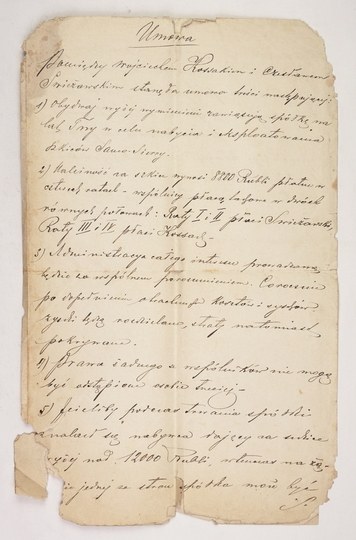 Umowa
Pomiędzy Wojciechem Kossakiem i Czesławem
Świeżawskim stanęła umowa treści następującej
1) Obydwaj wyżej wymienieni zawiązują spółkę na
lat Trzy w celu nabycia i eksploatowania
szkiców Samo-Sierry.
2) Należność za szkice wynosi 8800 Rubli płatne w
czterech ratach - wspólnicy płacą takowe w dwóch
równych połowach: Raty I i II płaci Świeżawski,
Raty III i IV płaci Kossak -
3) Administracya całego interesu prowadzoną
będzie za wspólnem porozumieniem. Corocznie
po dopełnieniu obrachunku kosztów i zysków
zyski będą rozdzielane, straty natomiast
pokrywane.
4) Prawa żadnego z wspólników nie mogą
być odstąpione osobie trzeciej -
5) Jeżeliby podczas trwania spółki
znalazł się nabywca dający za szkice
wyżej nad 12000 Rubli, wtenczas na
jednej ze stron spółka może być